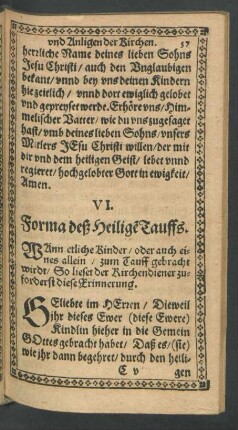 vnd Anligen der Kirchen. 57
herrliche Name deines lieben Sohns
Jesu Christi / auch den Vnglaubigen
bekant / vnnd bey vns deinen Kindern
hie zeitlich / vnnd dort ewiglich gelobet
vnd gepreyset werde. Erhöre vns / Him-
melischer Vatter / wie du vns zugesaget
hast / vmb deines lieben Sohns / vnsers
Mitlers JEsu Christi willen / der mit
dir vnd dem heiligen Geist / lebet vnnd
regieret / hochgelobter Gott in ewigkeit /
Amen.
VI.
Forma deß Heiligē Tauffs.
WAnn etliche Kinder / oder auch ei-
nes allein / zum Tauff gebracht
wirdt / So lieset der Kirchendiener zu-
forderst diese Erinnerung.
GEliebte im HErrn / Dieweil
jhr dieses Ewer (diese Ewere)
Kindlin hieher in die Gemein
GOttes gebracht habet / Daß es / (sie)
wie jhr dann begehret / durch den heili-
C v gen